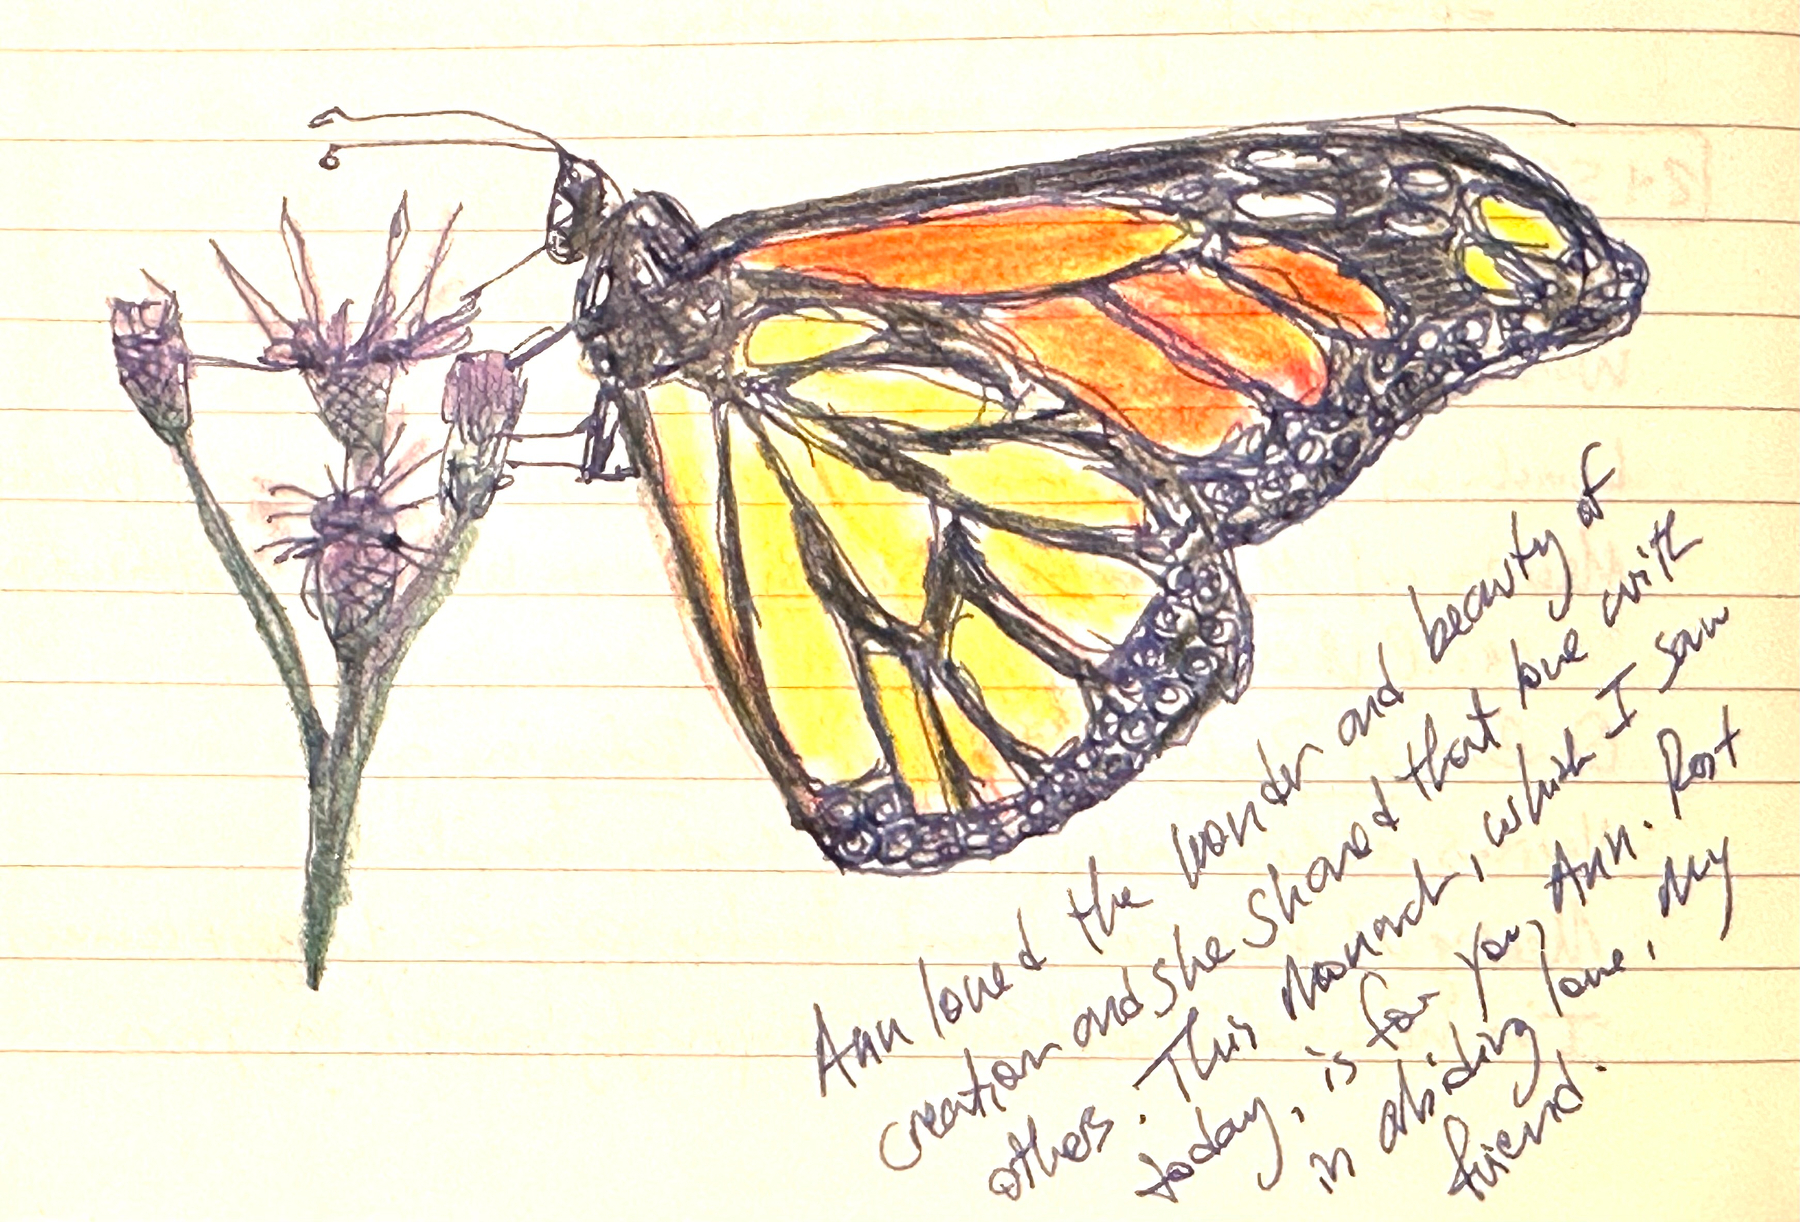 Ann loved the wonder and beauty of
creation and she shared that love with
others. This Monarch, which I saw
today, is for you, Ann. Rest
in abiding love, my
friend.